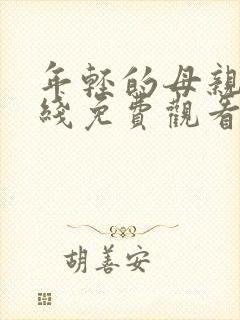 年轻的母親
綫免費觀看
胡善安